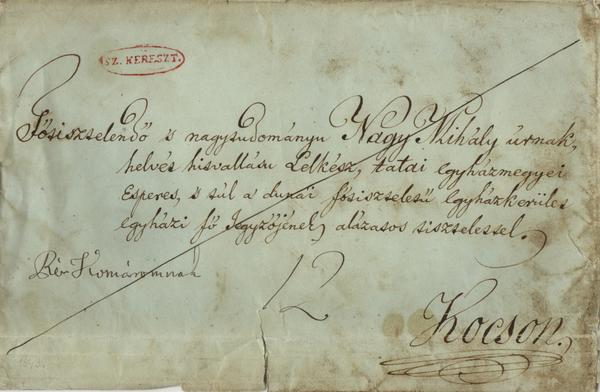 SZ. KERESZT.
Fősisztelendő s nagytudományu Nagy Mihály úrnak,
helvét hitvallásu Lelkész, tatai egyházmegyei
Esperes, s túl a dunai főtiszteletű egyházkerület
egyházi fő Jegyzőjének, alázatos tisztelettel.
Rév Komáromnak
12
Kocson.